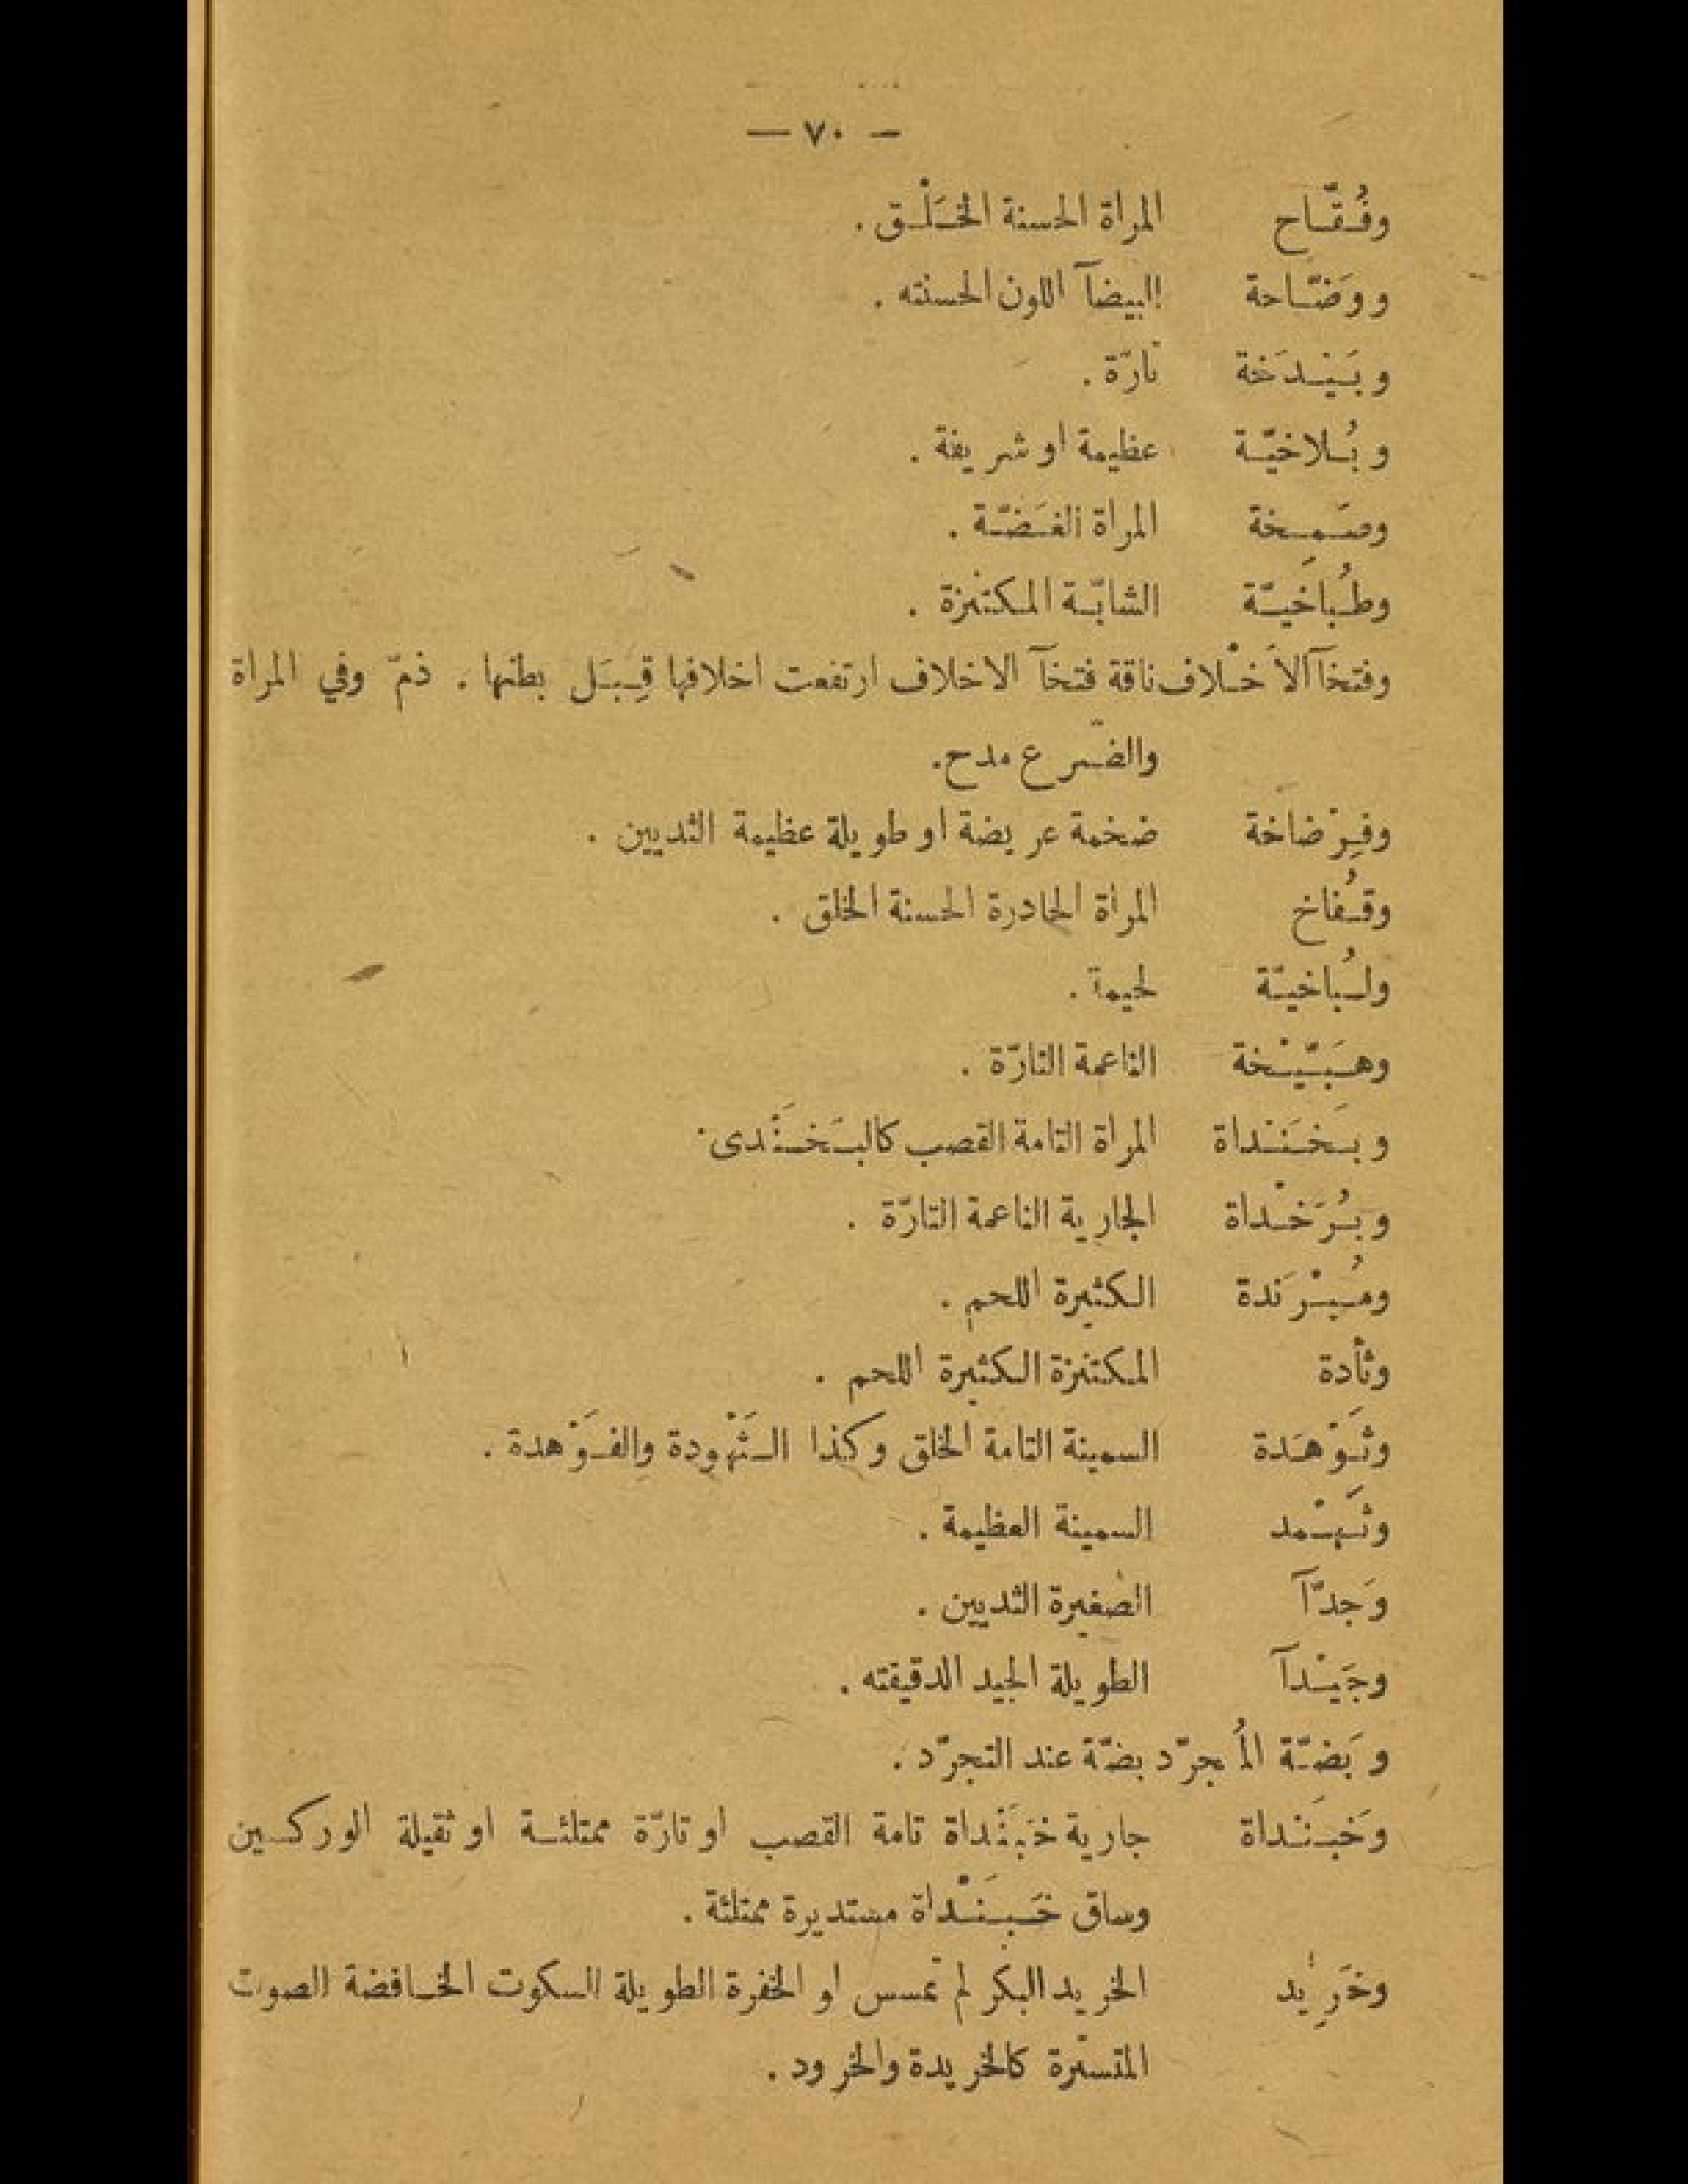 — ٧٠ —
وفُقّاح المراة الحسنة الخَلْق .
ووَضّاحة البيضآ اللون الحسنته .
وبَيْدَخة تارّة .
وبُلاخيّة عظيمة او شريفة .
وصَمِخة المراة الغَضّة .
وطُباخيّة الشابّة المكتنزة .
وفتخآ الاَخْلاف ناقة فتخآ الاخلاف ارتفعت اخلافها قِبَل بطنها . ذمّ وفي المراة
والضّرع مدح.
وفِرْضاخة ضخمة عريضة او طويلة عظيمة الثديين .
وقُفاخ المراة الحادرة الحسنة الخلق .
ولُباخيّة لحيمة .
وهَبَيّخة الناعمة التارّة .
وبَخَنْداة المراة التامة القصب كالبَخَنْدى .
وبُرَخْداة الجارية الناعمة التارّة .
ومُبْرَندة الكثيرة اللحم .
وثأدة المكتنزة الكثيرة اللحم .
وثَوْهَدة السمينة التامة الخلق وكذا الثَهْودة والفَوْهدة .
وثَهْمد السمينة العظيمة .
وَجدّآ الصغيرة الثديين .
وجَيْدآ الطويلة الجيد الدقيقته .
وبَضّة المُجرّد بضّة عند التجرّد .
وخَبَنْداة جارية خَبَنْداة تامة القصب او تارّة ممتلئة او ثقيلة الوركين
وساق خَبَنْداة مستديرة ممتلئة .
وخَرِيد الخريد البكر لم تمسس او الخفرة الطويلة السكوت الخافضة الصوت
المتسترة كالخريدة والخرود .